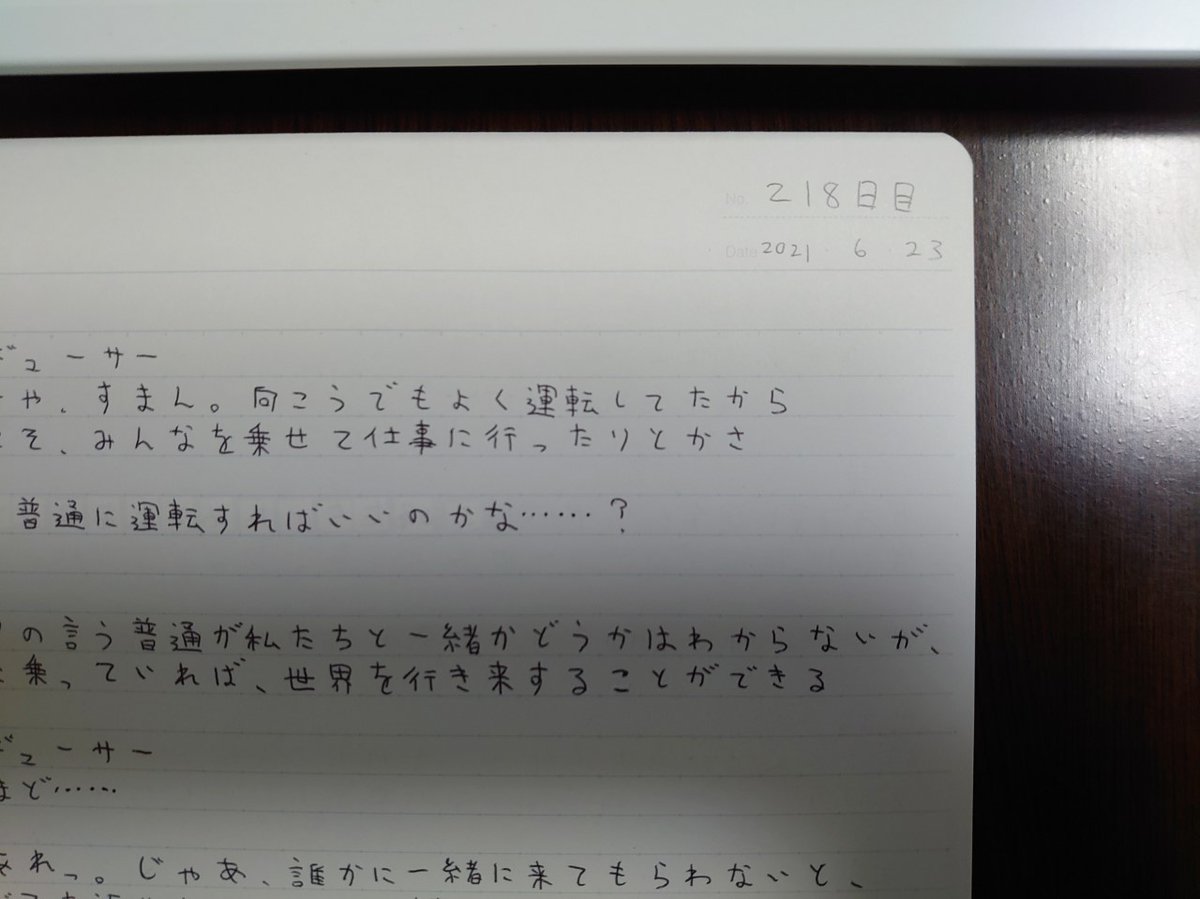 No. 218日目
Date 2021 . 6 . 23
デューサー
や、すまん。向こうでもよく運転してたから
そ、みんなを乗せて仕事に行ったりとかさ
普通に運転すればいいのかな……？
の言う普通が私たちと一緒かどうかはわからないが、
乗っていれば、世界を行き来することができる
デューサー
ほど……
あれっ。じゃあ、誰かに一緒に来てもらわないと、